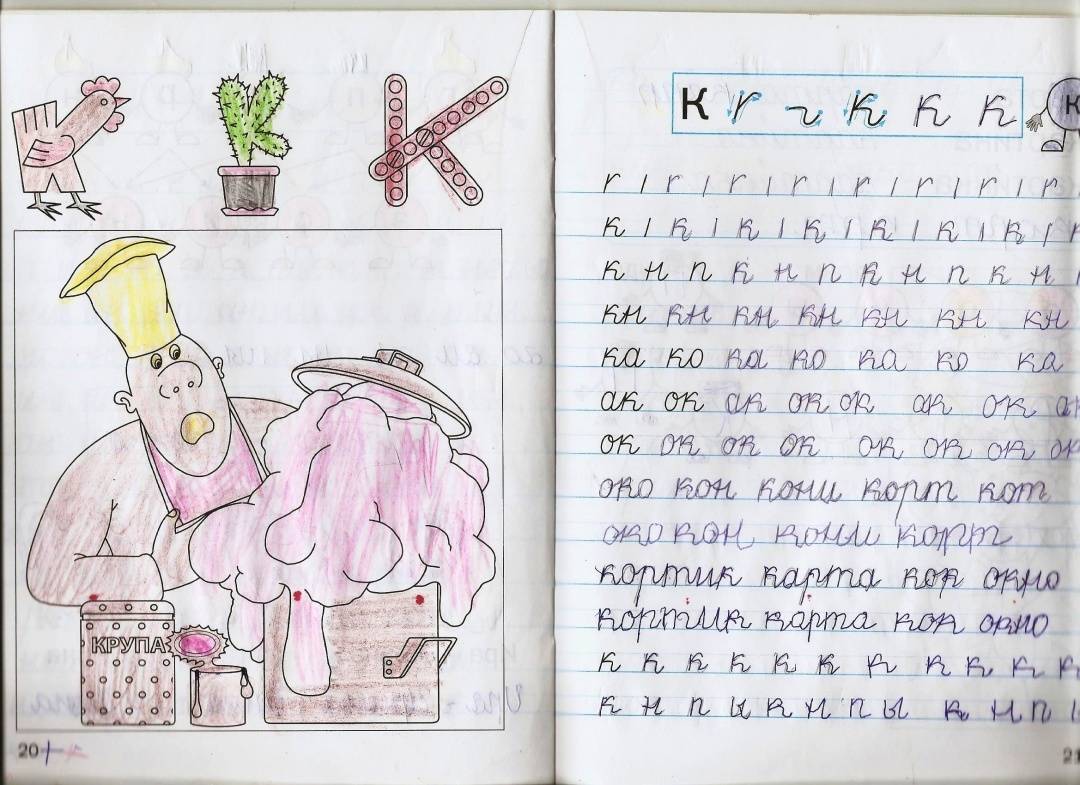 К
КРУПА
20
к к к к
К
г ı г ı г ı г ı г ı г ı г ı г
к ı к ı к ı к ı к ı к ı к ı к
к н п к н п к н п к н
кн кн кн кн кн кн кн
ка ко ка ко ка ко ка
ак ок ак ок ок ак ок ак
ок ок ок ок ок ок ок ок
око кон кони корт кот
око кон кони корт
кортик карта кок окно
кортик карта кок окно
к к к к к к к к к к к
к н п ы к н п ы к н п
21